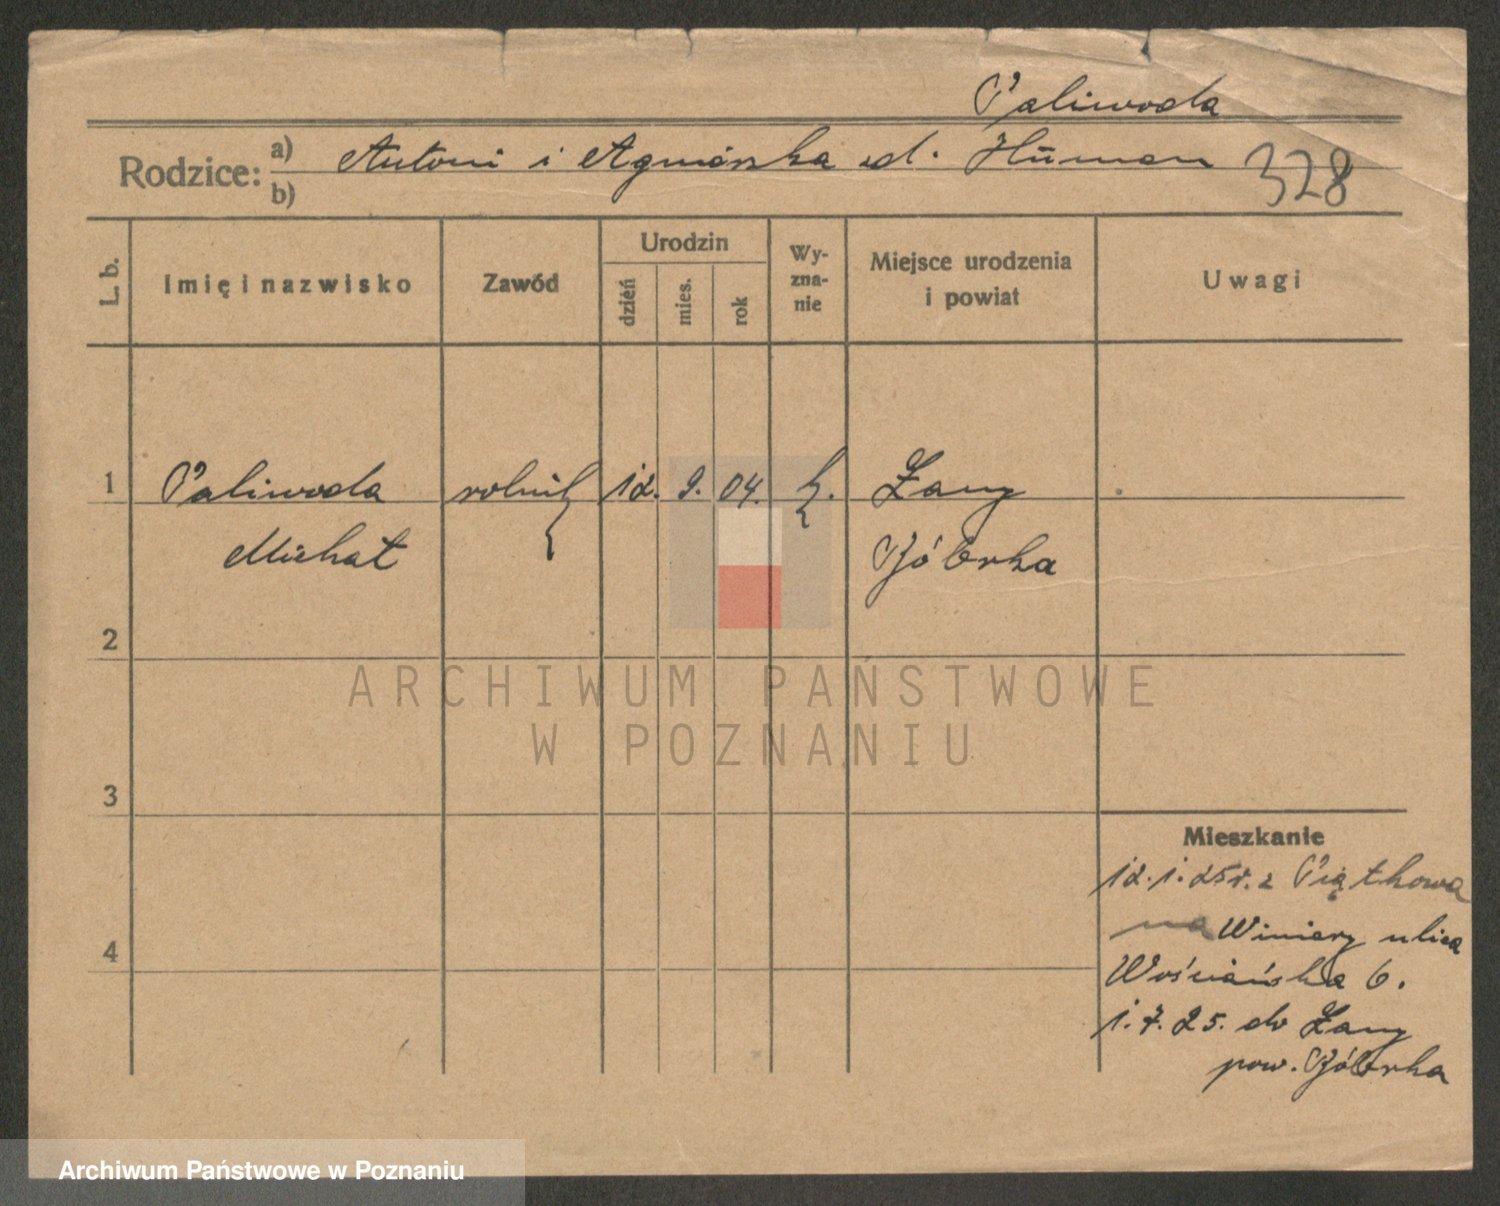 Paliwoda
Rodzice: a) Antoni i Agnieszka d. Human
b)
328
L. b. Imię i nazwisko Zawód Urodzin dzień mies. rok Wyznanie Miejsce urodzenia i powiat Uwagi
1 Paliwoda rolnik 12. 9. 04. k. Łany
Michał Bóbrka
2
3
4
Mieszkanie
12.1.25r. z Piątkowa
na Winiary ulica
Wościańska 6.
1.7.25. do Łany
pow. Bóbrka
ARCHIWUM PAŃSTWOWE
W POZNANIU
Archiwum Państwowe w Poznaniu